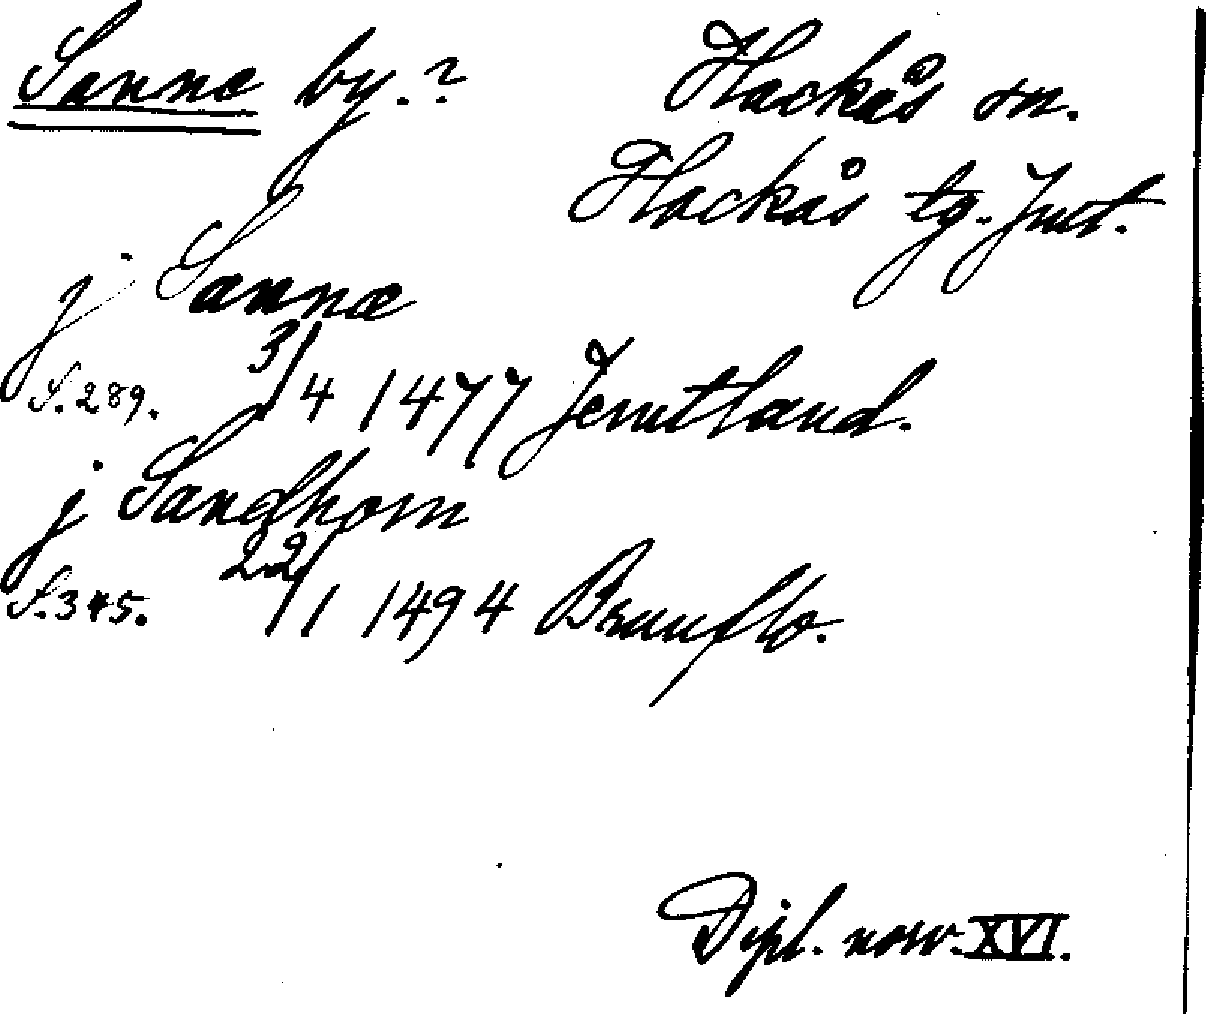 Sanne by.?
Hackås sn.
Hackås tg. Jmt.
j Sannæ
S. 289. 3/4 1477 Jemtland.
j Sandhom
S. 345. 22/1 1494 Brunflo.
Dipl. norv. XVI.